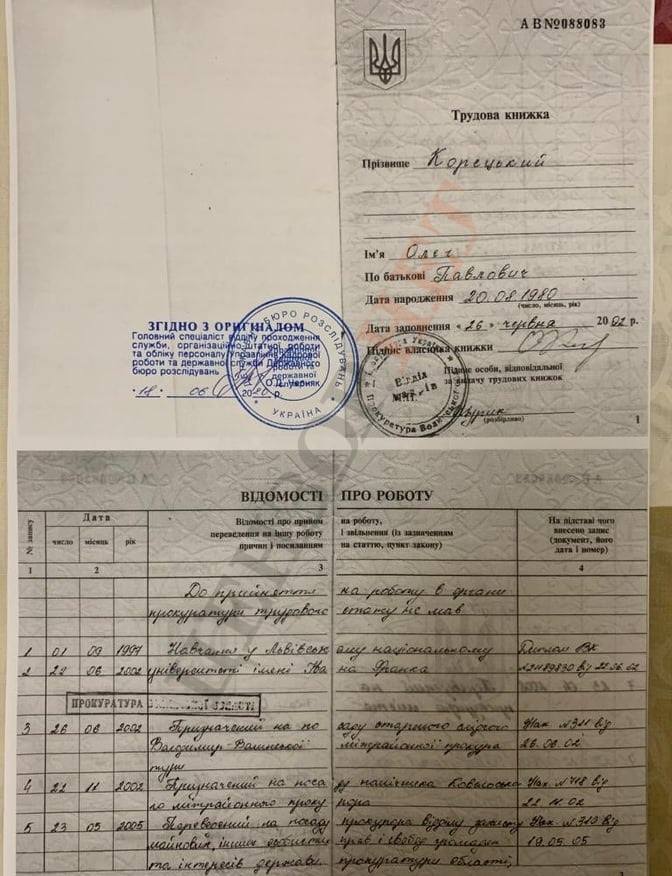 А В №088083
Трудова книжка
Прізвище Корецький
Ім'я Олег
По батькові Павлович
Дата народження 20.08.1980
(число, місяць, рік)
Дата заповнення «26» червня 2002 р.
Підпис власника книжки
Підпис особи, відповідальної
за видачу трудових книжок
(розбірливо)
1
ЗГІДНО З ОРИГІНАЛОМ
Головний спеціаліст відділу проходження
служби, організаційно-штатної роботи
та обліку персоналу Управління кадрової
роботи та державної служби Державного
бюро розслідувань
О.Д. Черняк
18 06 2020 р.
БЮРО РОЗСЛІДУВАНЬ
УКРАЇНА
ВІДОМОСТІ ПРО РОБОТУ
№ запису
Дата
число місяць рік
Відомості про прийом на роботу,
переведення на іншу роботу і звільнення (із зазначенням
причин і посиланням на статтю, пункт закону)
На підставі чого
внесено запис
(документ, його
дата і номер)
1 2 3 4
До прийняття на роботу в органи
прокуратури трудового стажу не мав
1 01 09 1997 Навчання у Львівському національному Диплом ВК
2 22 06 2002 університеті імені Івана Франка
ПРОКУРАТУРА
3 26 06 2002 Призначений на посаду старшого слідчого Нак №311 від
Володимир-Волинської міжрайонної прокура 26.06.02
тури
4 22 11 2002 Призначений на посаду помічника Ковельсько Нак №718 від
го міжрайонного прокурора 22.11.02
5 23 05 2005 Переведений на посаду прокурора відділу захисту Нак №319 від
майнових, інших особистих прав і свобод громадян 19.05.05
та інтересів держави прокуратури області,